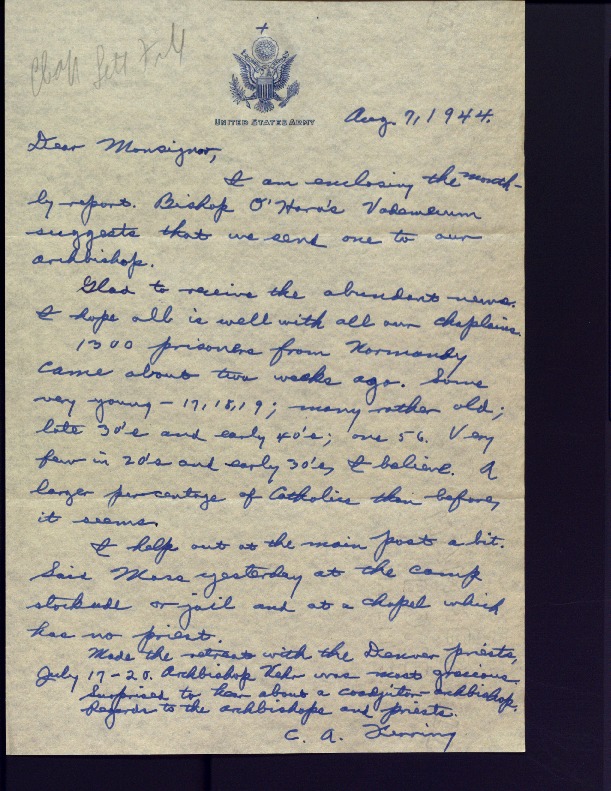 Chap
UNITED STATES ARMY
Aug. 7, 1944.
Dear Monsignor,
I am enclosing the month-
ly report. Bishop O'Hara's Vademecum
suggests that we send one to our
archbishop.
Glad to receive the abundant news.
I hope all is well with all our chaplains.
1300 prisoners from Normandy
came about two weeks ago. Some
very young - 17, 18, 19; many rather old;
late 30's and early 40's; one 56. Very
few in 20's and early 30's, I believe. A
larger percentage of Catholics than before,
it seems.
I help out at the main post a bit.
Said Mass yesterday at the camp
stockade or jail and at a chapel which
has no priest.
Made the retreat with the Denver priests,
July 17-20. Archbishop Vehr was most gracious.
Surprised to hear about a coadjutor archbishop.
Regards to the archbishops and priests.
C. A.